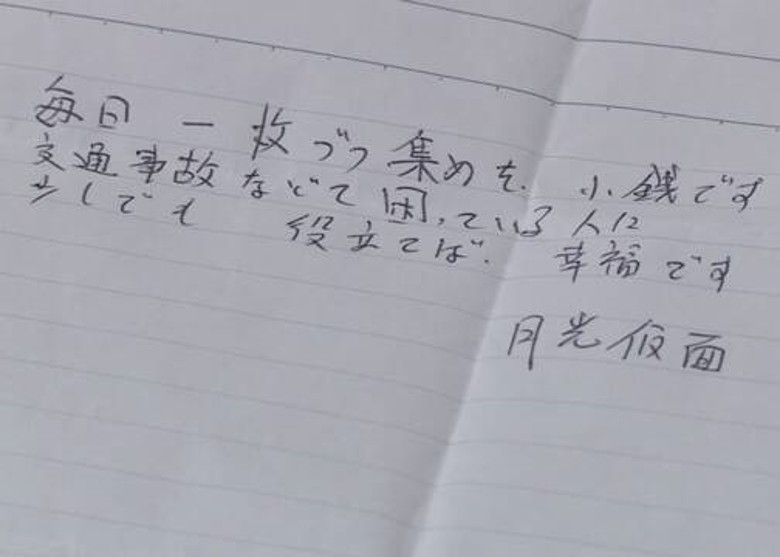 毎日 一枚づつ集めた. 小銭です
交通事故などで困っている人に
少しでも 役立てば. 幸福です
月光仮面